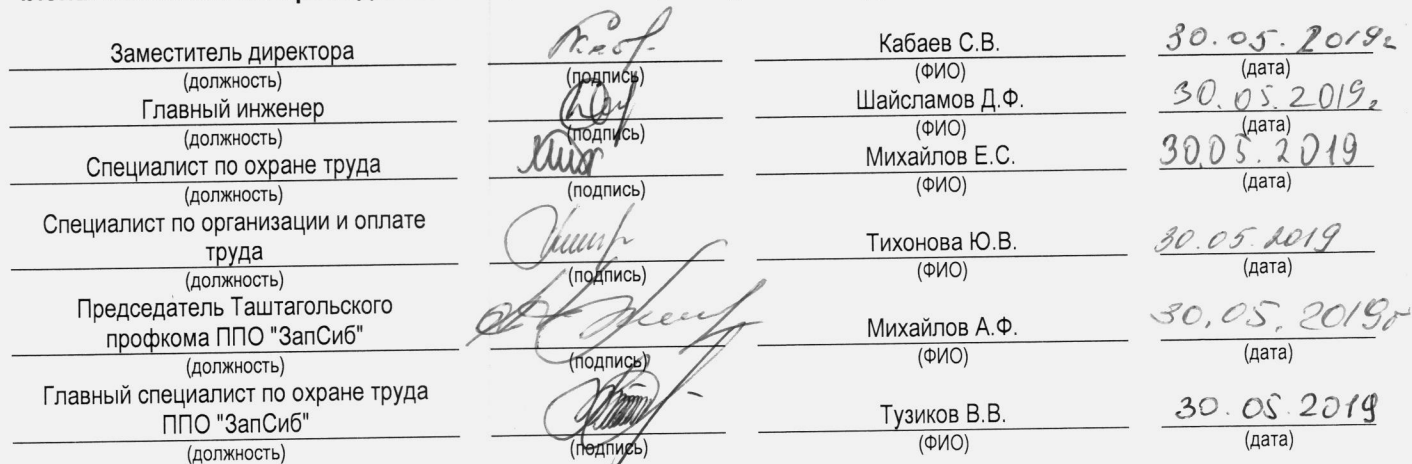 Заместитель директора Кабаев С.В. 30.05.2019г
(должность) (подпись) (ФИО) (дата)
Главный инженер Шайсламов Д.Ф. 30.05.2019г
(должность) (подпись) (ФИО) (дата)
Специалист по охране труда Михайлов Е.С. 30.05.2019
(должность) (подпись) (ФИО) (дата)
Специалист по организации и оплате
труда Тихонова Ю.В. 30.05.2019
(должность) (подпись) (ФИО) (дата)
Председатель Таштагольского
профкома ППО "ЗапСиб" Михайлов А.Ф. 30.05.2019г
(должность) (подпись) (ФИО) (дата)
Главный специалист по охране труда
ППО "ЗапСиб" Тузиков В.В. 30.05.2019
(должность) (подпись) (ФИО) (дата)